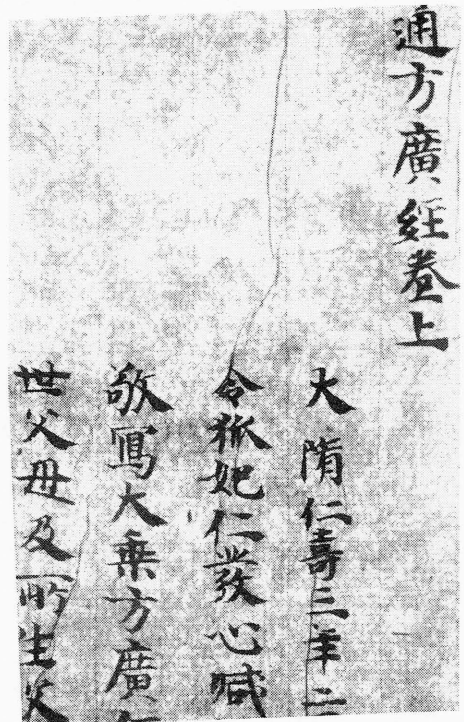 通方廣經卷上
大隋仁壽三年二
令狐妃仁發心減
敬寫大乘方廣
世父母及所生父